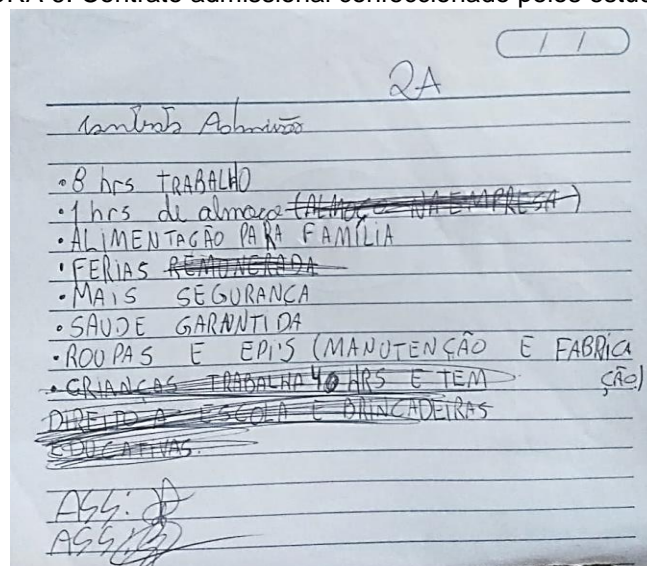 Contrato admissional confeccionado pelos
/ /
2A
Contrato Admissão
• 8 hrs TRABALHO
• 1 hrs de almoço (ALMOÇO NA EMPRESA)
• ALIMENTAÇÃO PARA FAMÍLIA
• FERIAS REMUNERADA
• MAIS SEGURANÇA
• SAUDE GARANTIDA
• ROUPAS E EPI'S (MANUTENÇÃO E FABRICA
• CRIANÇAS TRABALHA 40 HRS E TEM ÇÃO)
DIREITO A ESCOLA E BRINCADEIRAS
EDUCATIVAS.
ASS:
ASS: